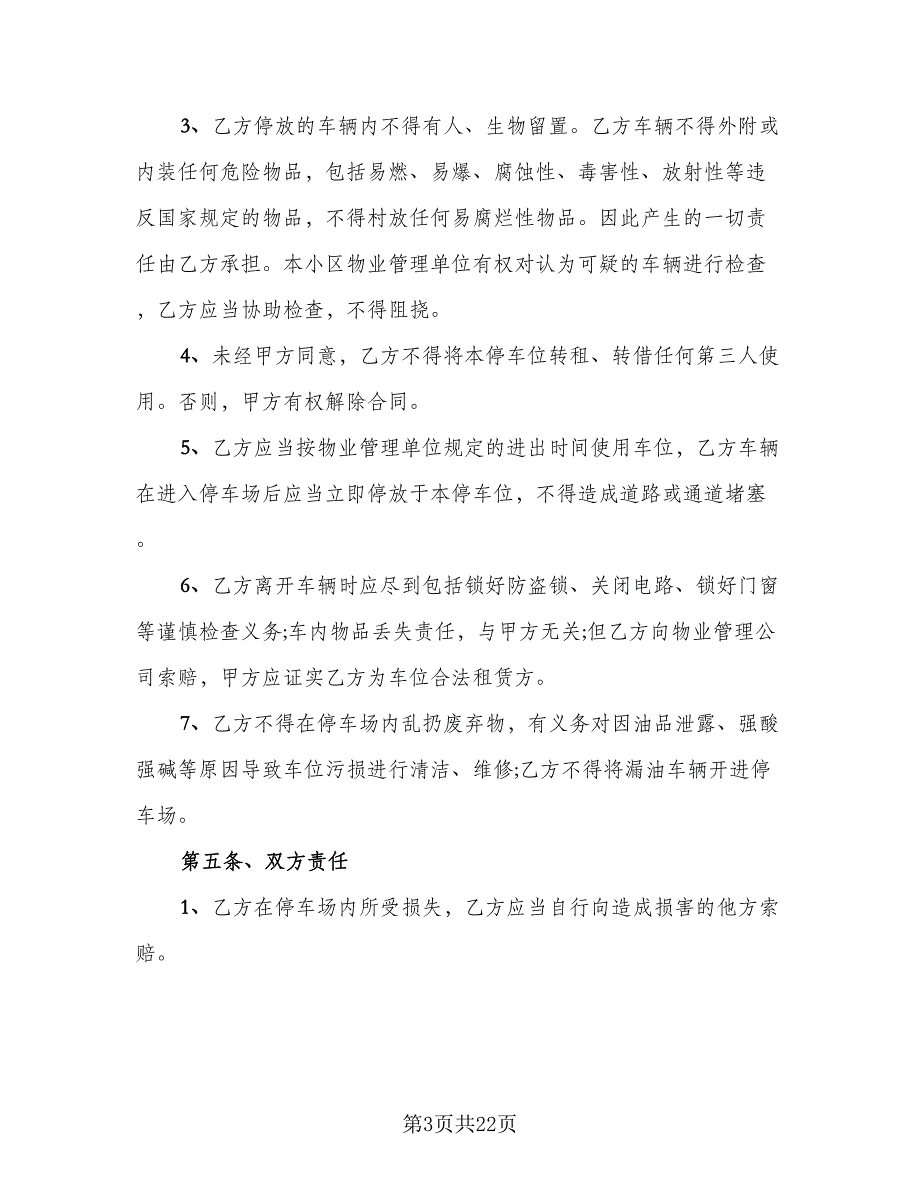 3、乙方停放的车辆内不得有人、生物留置。乙方车辆不得外附或
内装任何危险物品，包括易燃、易爆、腐蚀性、毒害性、放射性等违
反国家规定的物品，不得村放任何易腐烂性物品。因此产生的一切责
任由乙方承担。本小区物业管理单位有权对认为可疑的车辆进行检查
，乙方应当协助检查，不得阻挠。
4、未经甲方同意，乙方不得将本停车位转租、转借任何第三人使
用。否则，甲方有权解除合同。
5、乙方应当按物业管理单位规定的进出时间使用车位，乙方车辆
在进入停车场后应当立即停放于本停车位，不得造成道路或通道堵塞
。
6、乙方离开车辆时应尽到包括锁好防盗锁、关闭电路、锁好门窗
等谨慎检查义务;车内物品丢失责任，与甲方无关;但乙方向物业管理公
司索赔，甲方应证实乙方为车位合法租赁方。
7、乙方不得在停车场内乱扔废弃物，有义务对因油品泄露、强酸
强碱等原因导致车位污损进行清洁、维修;乙方不得将漏油车辆开进停
车场。
第五条、双方责任
1、乙方在停车场内所受损失，乙方应当自行向造成损害的他方索
赔。
第3页共22页